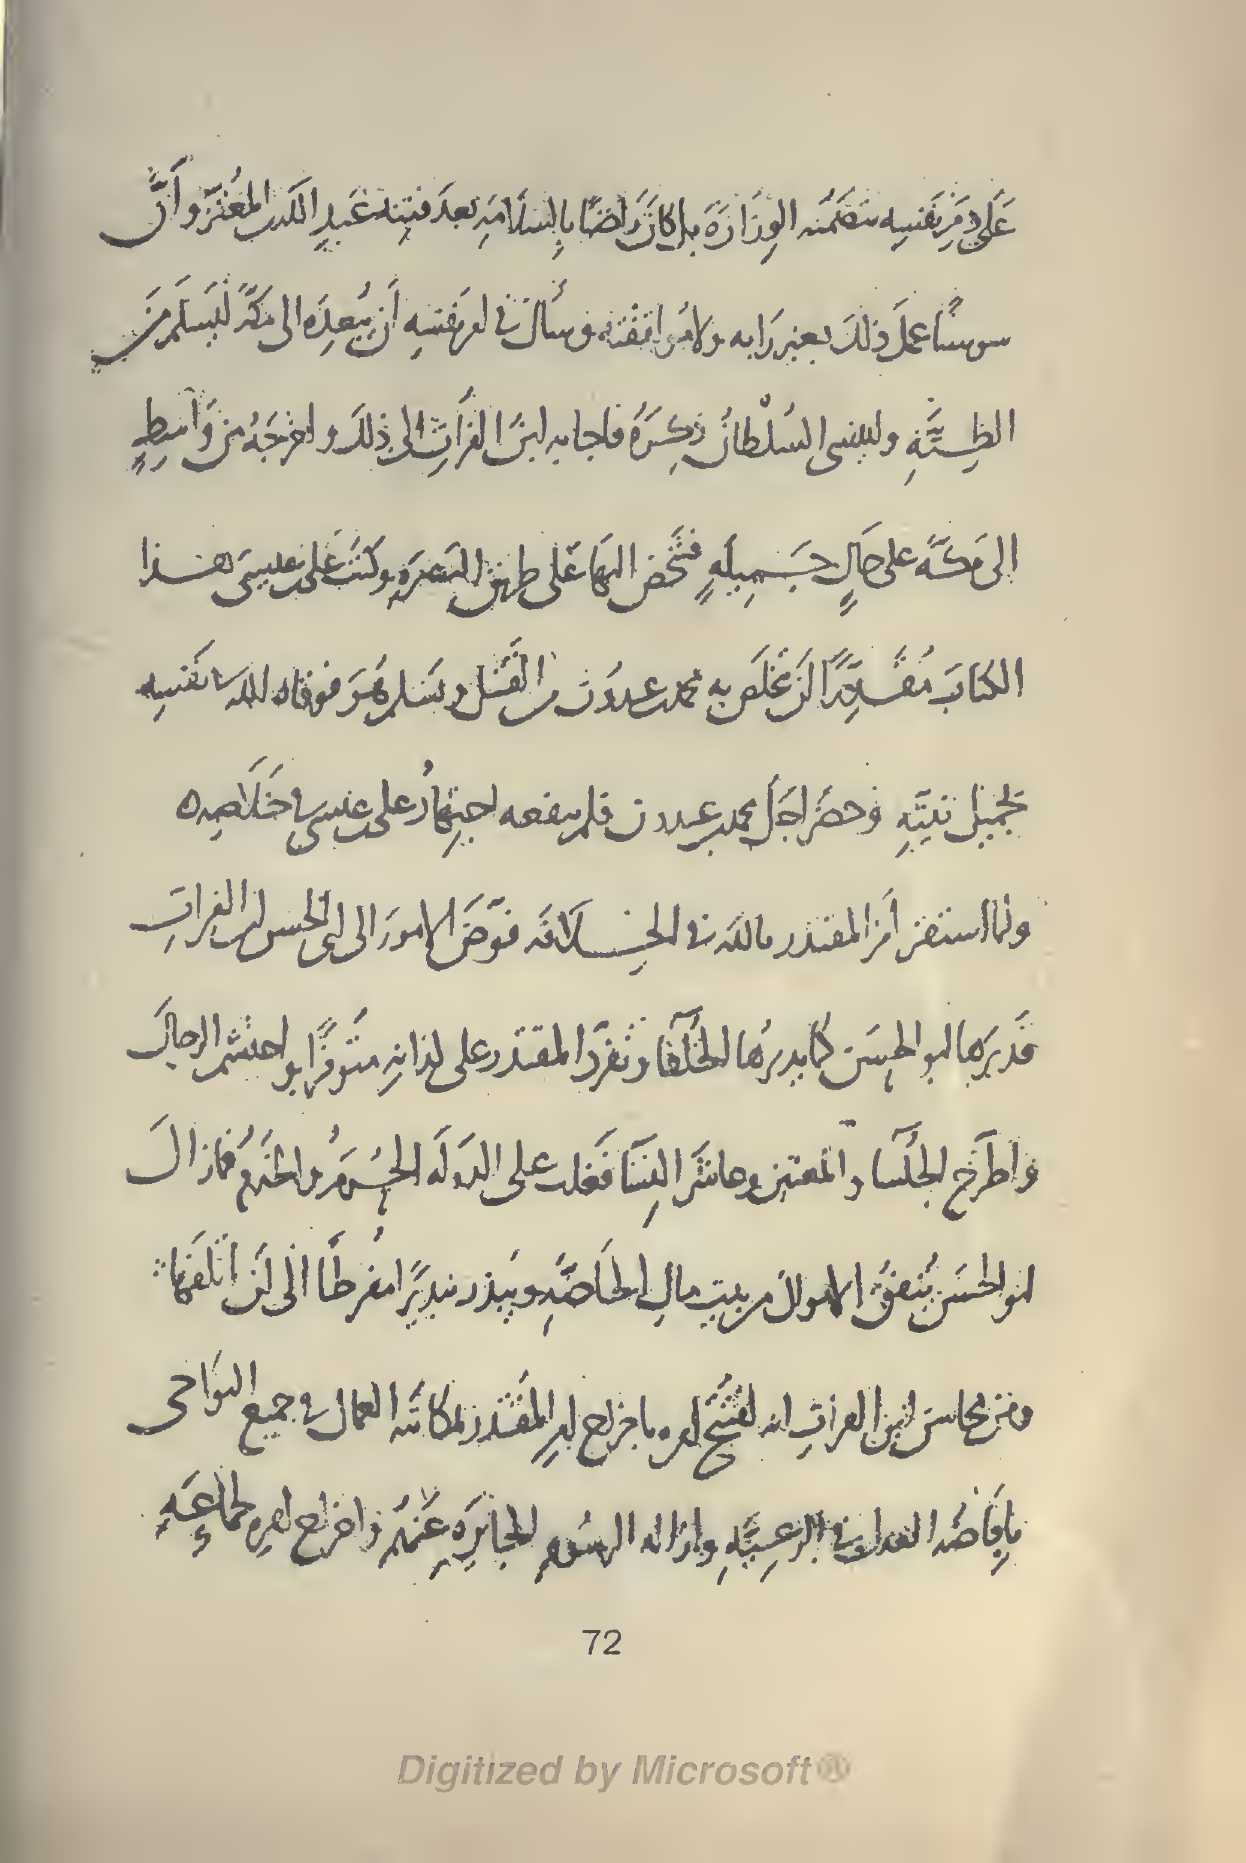 على دمر نفسه متضمنه الوزارة بل كان راضيا بالسلامة بعد فتنة عبد الله بن المعتز وأن
سوسنا عمل ذلك بغير رايه ولا موافقته وسأل في امر نفسه أن يبعده الى مكة ليسلم من
الظنة ولينسى السلطان ذكره فاجابه ابن الفرات الى ذلك واخرجه من واسط
الى مكة على حال جميلة فشخص اليها على طريق البصرة وكتب على بن عيسى هذا
الكتاب مقدرا ان يخلص به محمد بن عبدون من القتل ويسلم هو فوقاه الله نفسه
بجميل نيته وحضر اجل محمد بن عبدون فلم ينفعه اجتهاد على بن عيسى في خلاصه
ولما استقر أمر المقتدر بالله في الخلافة فوض الامور الى ابى الحسن بن الفرات
فدبرها ابو الحسن كما يدبرها الخلفا وتفرد المقتدر على لذاته متوفرا واحتشم الرجال
واطرح الجلسا والمغنين وعاشر النسا فغلب على الدولة الحرم والخدم فما زال
ابو الحسن ينفق الاموال من بيت مال الخاصة ويبذر تبذيرا مفرطا الى ان اتلفها
ومن محاسن ابن الفرات انه افتتح امره باخراج امر المقتدر بمكاتبة العمال في جميع النواحى
بافاضة العدل في الرعية وازالة الرسوم الجائرة عنهم واخراج امره لجماعة
72
Digitized by Microsoft®